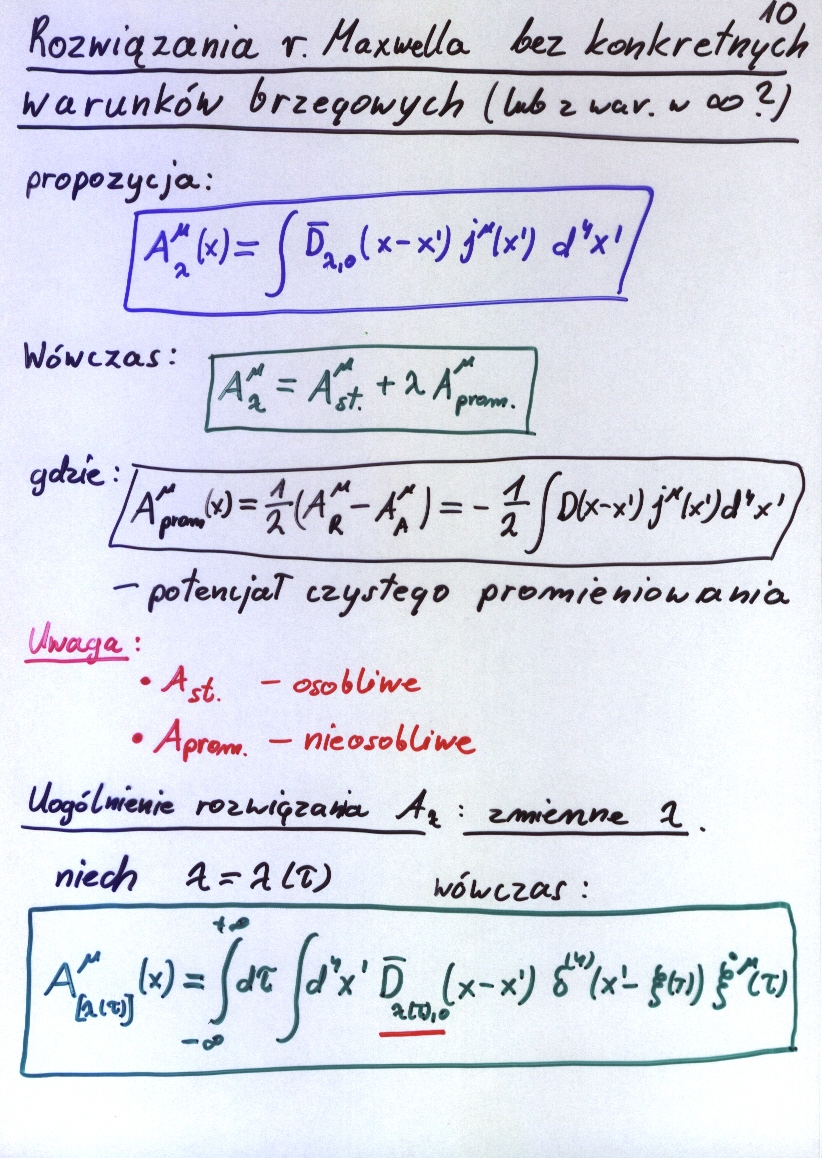 10
Rozwiązania r. Maxwella bez konkretnych
warunków brzegowych (lub z war. w ∞ ?)
propozycja:
A^μ_λ(x) = ∫ D̄_{λ,0}(x-x') j^μ(x') d⁴x'
Wówczas:
A^μ_λ = A^μ_{st.} + λ A^μ_{prom.}
gdzie:
A^μ_{prom}(x) = 1/2 (A^μ_R - A^μ_A) = - 1/2 ∫ D(x-x') j^μ(x') d⁴x'
– potencjał czystego promieniowania
Uwaga:
• A_{st.} – osobliwe
• A_{prom.} – nieosobliwe
Uogólnienie rozwiązania A_λ : zmienne λ.
niech λ = λ(τ) wówczas:
A^μ_{[λ(τ)]}(x) = ∫_{-∞}^{+∞} dτ ∫ d⁴x' D̄_{λ(τ),0}(x-x') δ^{(4)}(x'- ξ(τ)) ξ̇^μ(τ)